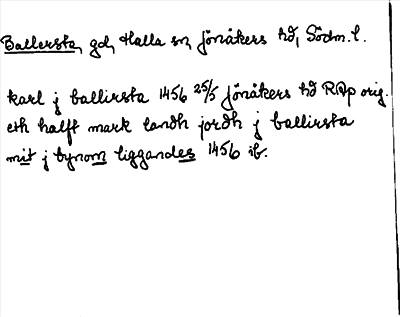 Ballersta, gd, Halla sn, Jönåkers hd, Södm.l.
karl j ballirsta 1456 25/5 Jönåkers hd RAp orig.
eth halft mark landh jordh j ballirsta
mit j bynom liggandes 1456 ib.